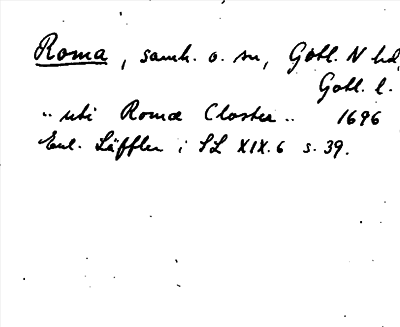 Roma, samh. o. sn, Gotl. N hd,
Gotl. l.
„ uti Romæ Closter „ 1696
Enl. Läffler i SL XIX.6 s. 39.